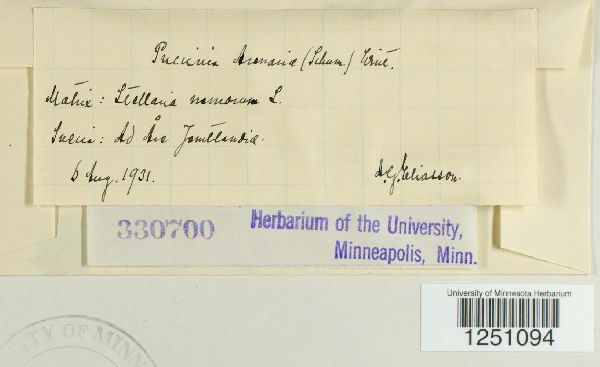 Puccinia Arenariæ (Schum.) Wint.
Matrix: Stellaria nemorum L.
Suecia: Ad Åre Jemtlandiæ.
6 Aug. 1931.
A.G. Eliasson.
330700
Herbarium of the University,
Minneapolis, Minn.
University of Minnesota Herbarium
1251094
TY OF MINN